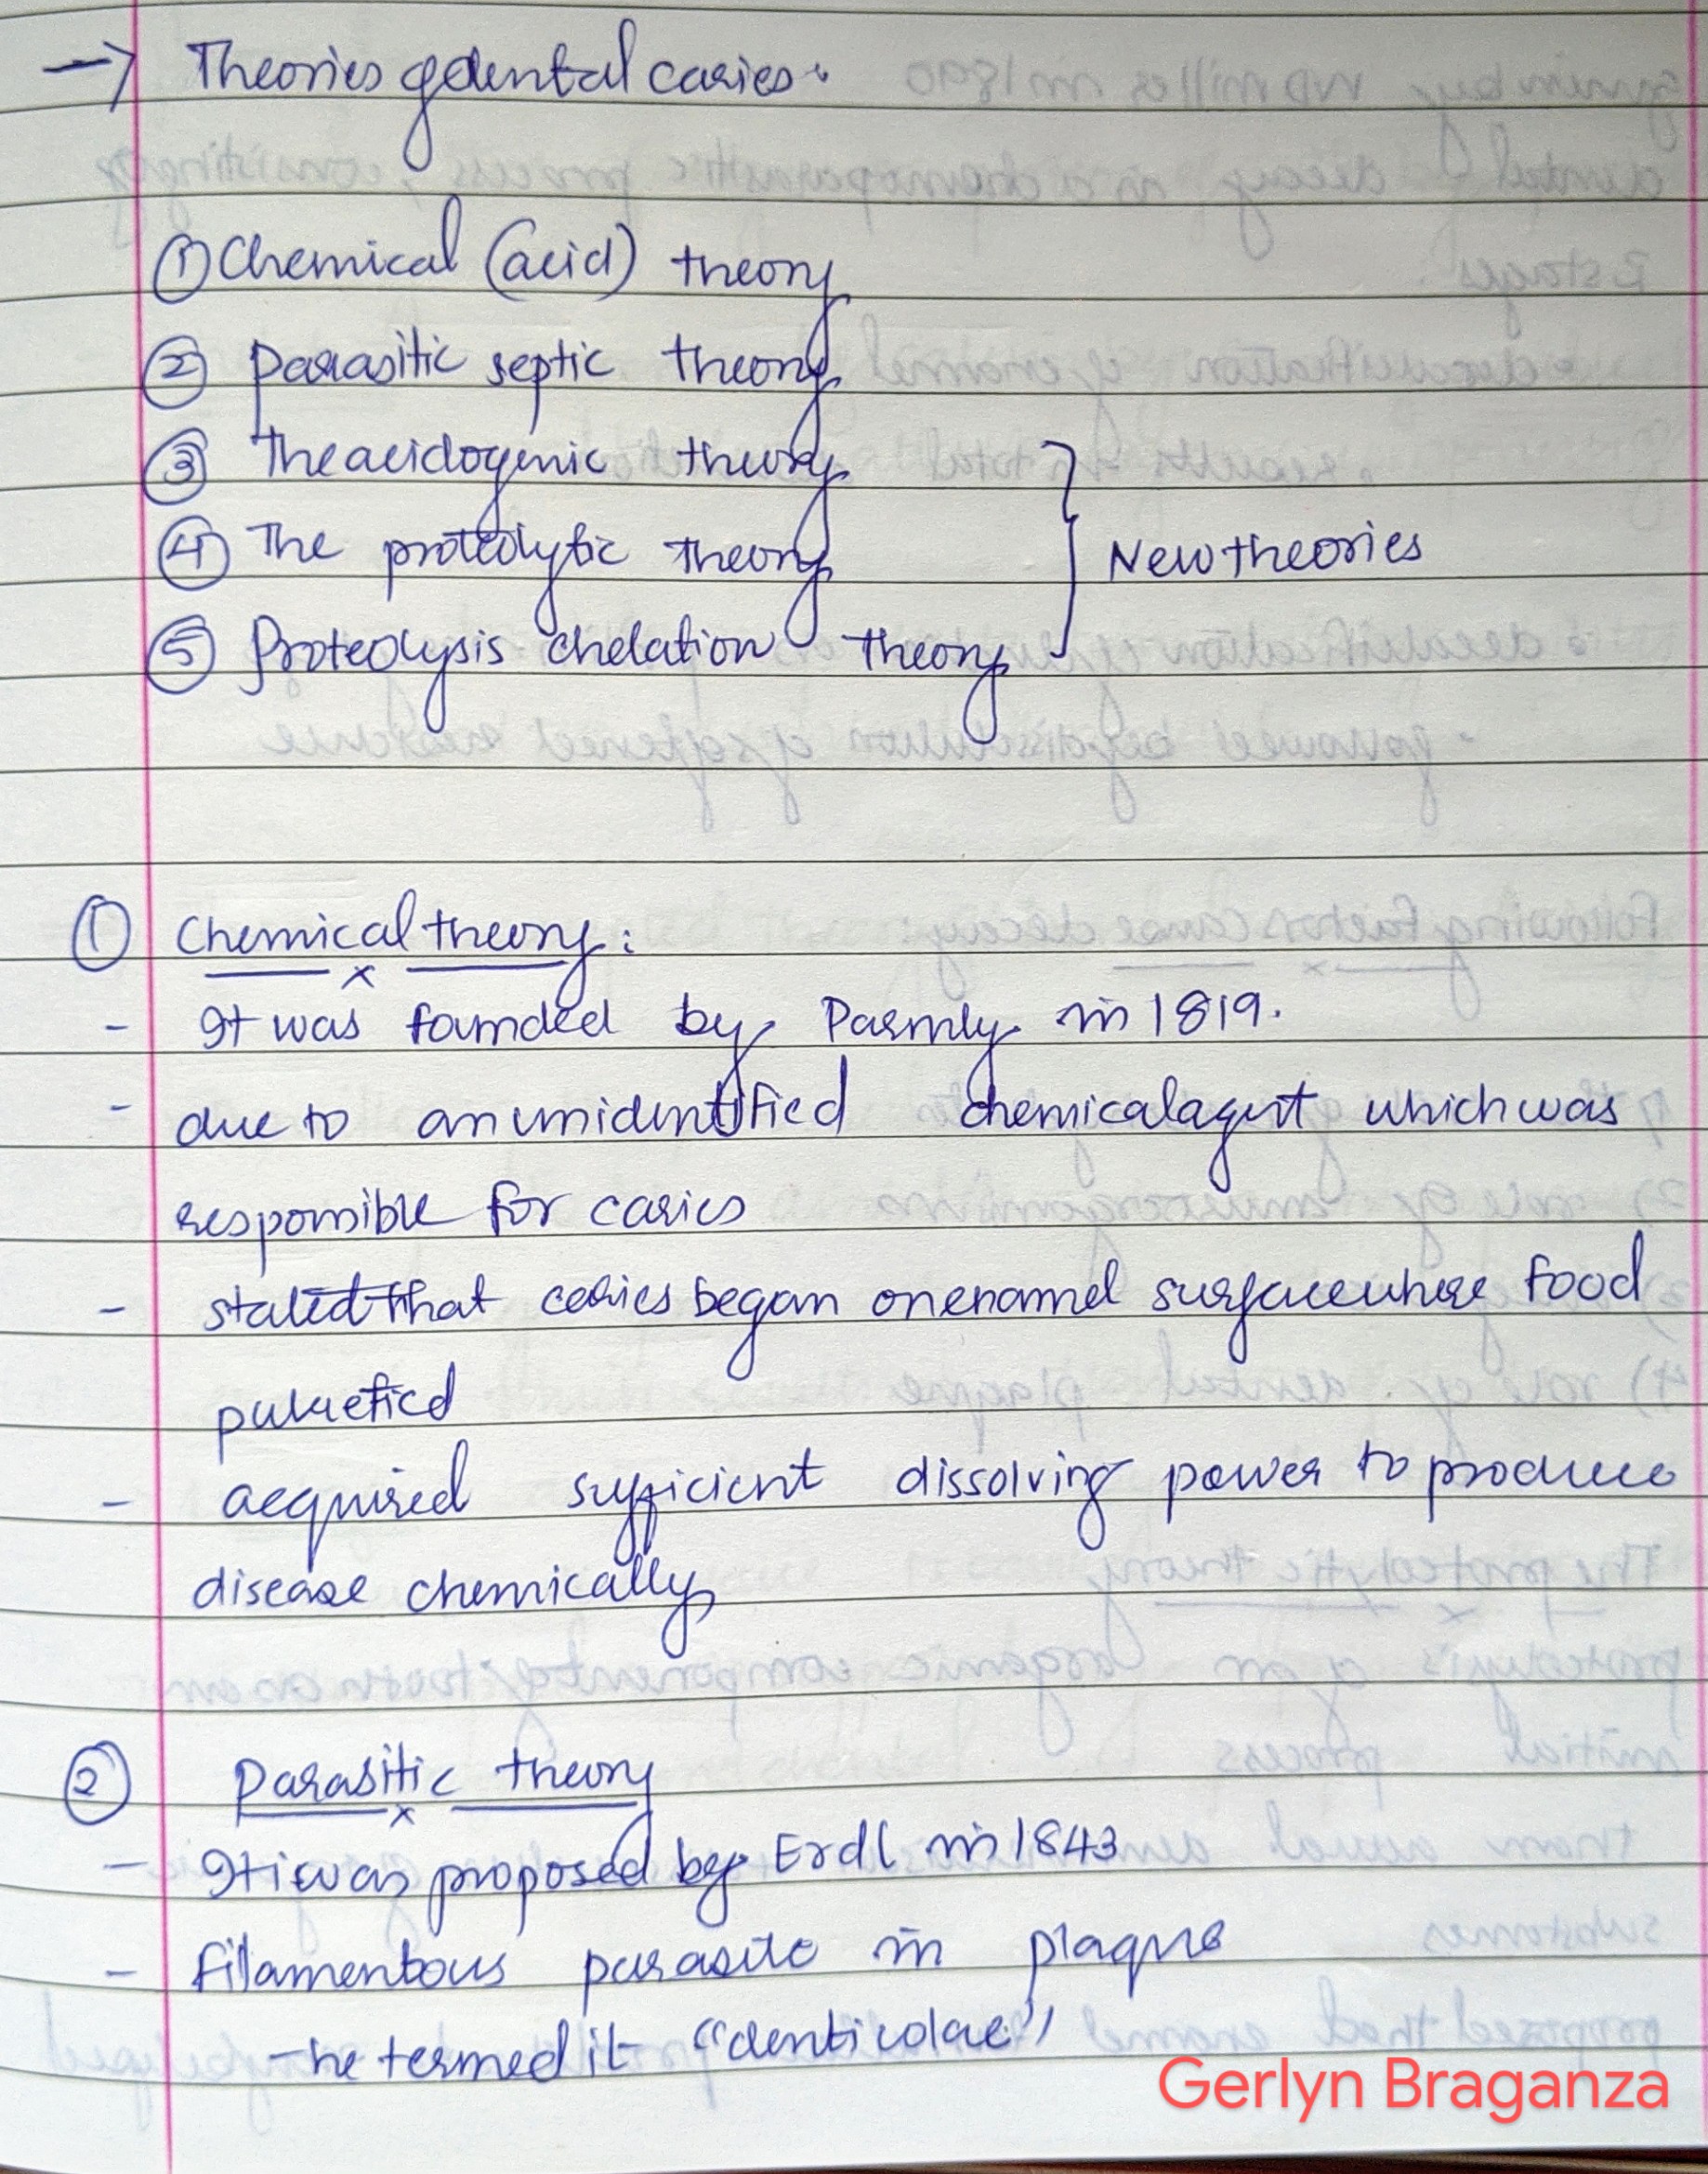 → Theories of dental caries.
① Chemical (acid) theory
② Parasitic septic theory
③ The acidogenic theory
④ The proteolytic theory
New theories
⑤ Proteolysis chelation theory
① Chemical theory:
- It was founded by Parmly in 1819.
- due to an unidentified chemical agent which was
responsible for caries
- stated that caries began on enamel surface where food
putrefied
- acquired sufficient dissolving power to produce
disease chemically
② Parasitic theory
- It was proposed by Erdl in 1843
- Filamentous parasite in plaque
- he termed it "denticolae"
Gerlyn Braganza